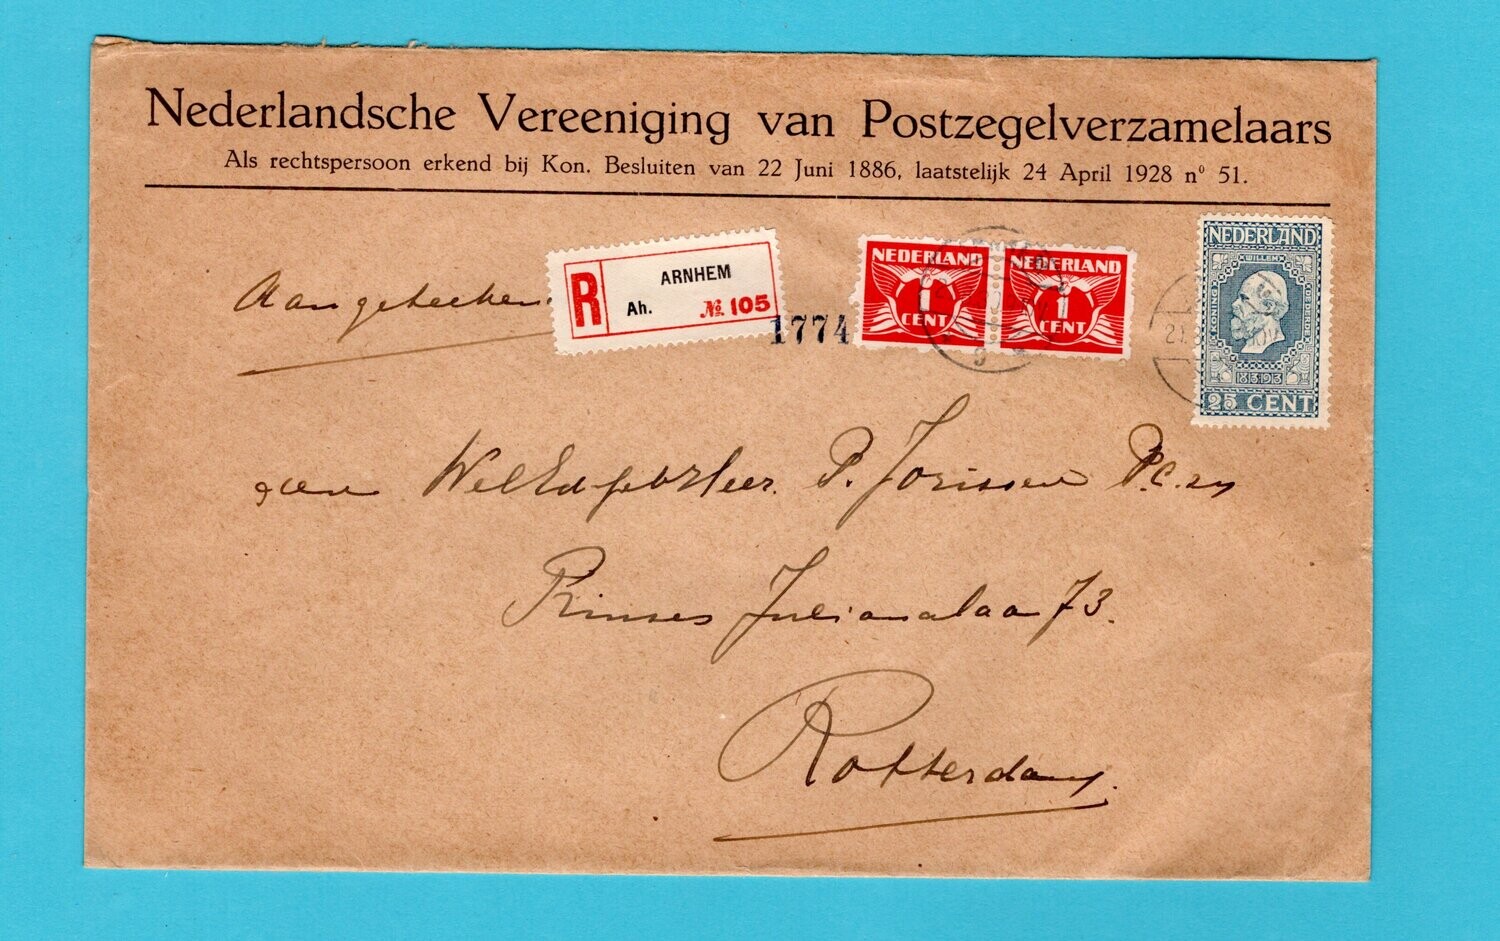 Nederlandsche Vereeniging van Postzegelverzamelaars
Als rechtspersoon erkend bij Kon. Besluiten van 22 Juni 1886, laatstelijk 24 April 1928 nº 51.
Aangeteekend
R
ARNHEM
Ah. № 105
1774
NEDERLAND
1
CENT
NEDERLAND
1
CENT
NEDERLAND
WILLEM
KONING
DERDE
1813 1913
25 CENT
21
den WelEdelgebHeer. P. Jorissen P.C.zn
Prinses Julianalaan 73.
Rotterdam